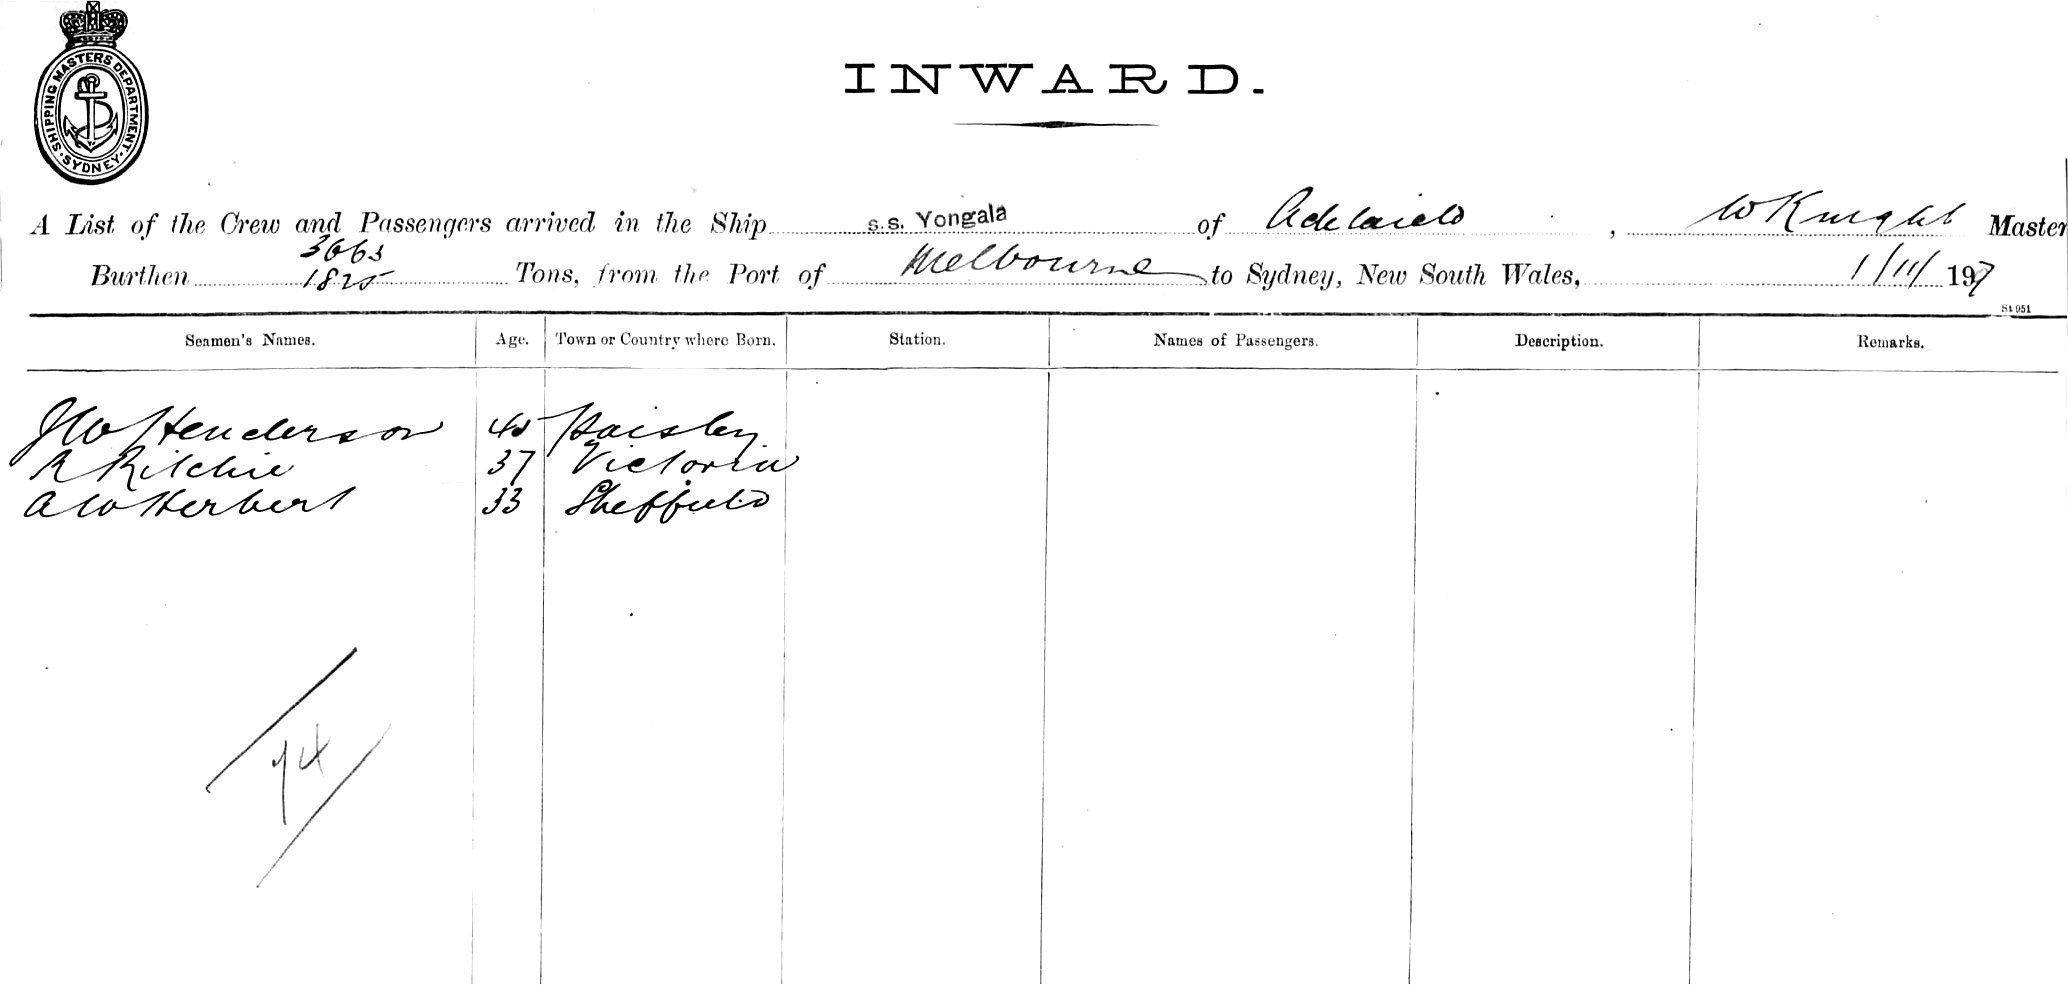 SHIPPING MASTERS DEPARTMENT. SYDNEY.
INWARD.
A List of the Crew and Passengers arrived in the Ship s.s. Yongala of Adelaide, W Knight Master
3663
Burthen 1825 Tons, from the Port of Melbourne to Sydney, New South Wales, 1/11/ 1907
St 951
Seamen's Names. Age. Town or Country where Born. Station. Names of Passengers. Description. Remarks.
J W Henderson 40 Paisley
R Ritchie 37 Victoria
A W Herbert 33 Sheffield
74